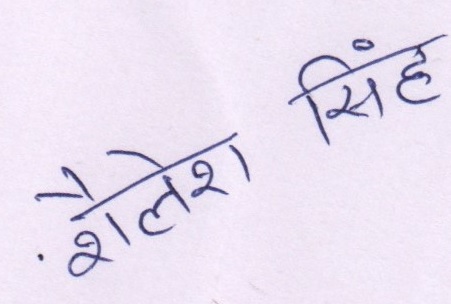 शैलेश सिंह